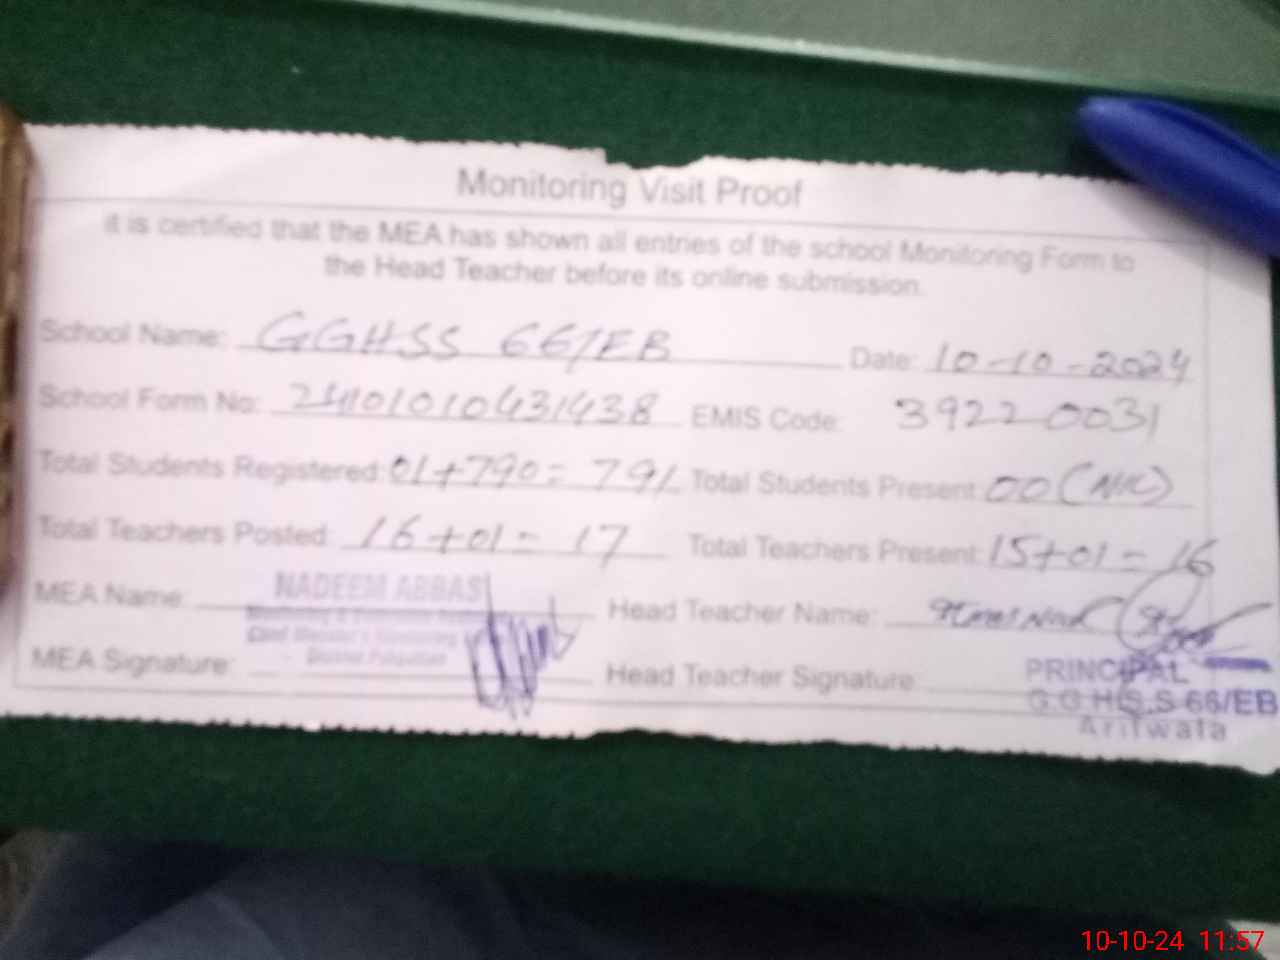 Monitoring Visit Proof
it is certified that the MEA has shown all entries of the school Monitoring Form to
the Head Teacher before its online submission.
School Name: GGHSS 66/EB Date: 10-10-2024
School Form No: EMIS Code: 39220031
Total Students Registered: 01+790= 791 Total Students Present: 00 (Nil)
Total Teachers Posted: 16+01= 17 Total Teachers Present: 15+01= 16
MEA Name: NADEEM ABBAS Head Teacher Name:
Chief Minister's
District Pakpattan
MEA Signature: Head Teacher Signature:
PRINCIPAL
G.G.H.S.S 66/EB
Arifwala
10-10-24 11:57